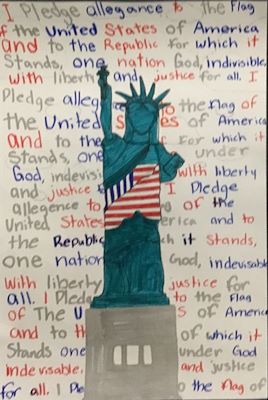 I Pledge allegance to the Flag
f the United States of America
and to the Republic for which it
Stands, one nation God, indivisible,
with liberty and justice for all. I
Pledge alleg to the Flag of
the United S es of America
and to the for which it
Stands, one under
God, indevisi with liberty
and justice I Pledge
allegence to of the
United States erica and to
the Republic ch it Stands,
one nation God, indevisable
with liberty justice for
all. I Pled to the Flag
of The U s of America
and to th of which it
Stands one under God
indevisable. and justice
for all. I Ple o the flag of